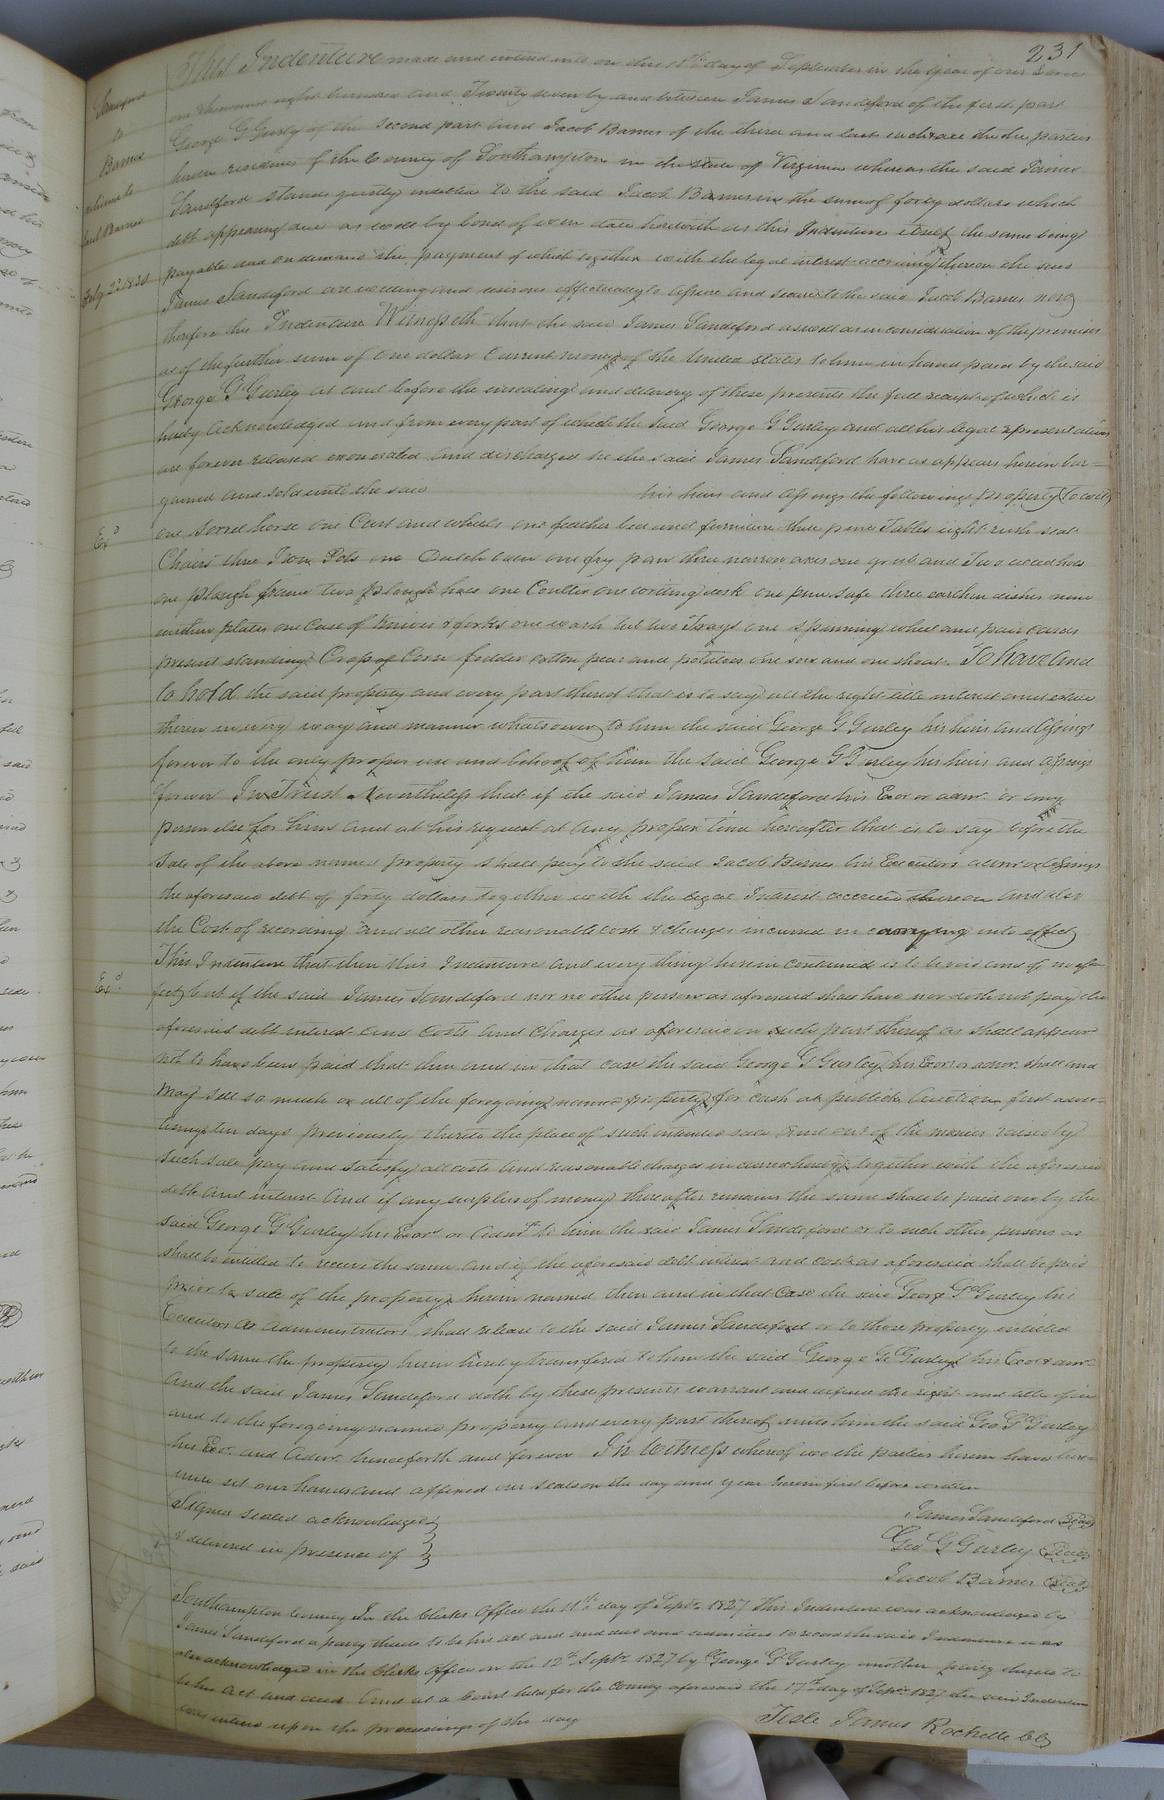 231
This Indenture made and entered into on this 11th day of September in the year of our Lord
one thousand eight hundred and Twenty seven by and between James Sandeford of the first part
George G Gurly of the second part and Jacob Barnes of the third and last part the parties
residence of the County of Southampton in the state of Virginia whereas the said James
Sandford stands justly indebted to the said Jacob Barnes in the sum of forty dollars which
debt appearing due as well by bond of even date herewith as this Indenture itself the same being
payable due on demand the payment of which together with the legal interest accruing thereon the said
James Sandeford are willing and desirous effectually to assure and secure to the said Jacob Barnes now
therefore this Indenture Witnesseth that the said James Sandeford as well as in consideration of the premises
as of the further sum of one dollar Current money of the United States to him in hand paid by the said
George G Gurley at and before the ensealing and delivery of these presents the full receipt of which is
hereby acknowledged and from every part of which the said George G Gurley and all his legal representatives
are forever released exonerated and discharged he the said James Sandeford have as appears herein bar=
gained and sold unto the said his heirs and assigns the following property (to wit)
one sorrel horse one Cart and wheels one feather bed and furniture three pine Tables eight rush seat
Chairs three Iron Pots one Dutch oven one fry pan three narrow axes one grub and Two weed hoes
one plough frame two plough hoes one Coulter one writing desk one pine safe three earthen dishes nine
earthen plates one Case of knives & forks one wash tub two Trays one spinning wheel and pair cards
present standing Crop of Corn fodder cotton peas and potatoes one sow and one shoat. To have and
to hold the said property and every part thereof that is to say all the right title interest and estate
therein in every way and manner whatsoever to him the said George G Gurley his heirs and assigns
forever to the only proper use and behoof of him the said George G Gurley his heirs and assigns
forever In Trust Nevertheless that if the said James Sandeford his Exor or admr. or any
person else for him and at his request at any proper time hereafter that is to say before the
Sale of the above named property shall pay to the said Jacob Barnes his Executors admr or assigns
the aforesaid debt of forty dollars together with the legal Interest accrued thereon and also
the Cost of recording and all other reasonable cost & charges incurred in carrying into effect
This Indenture that then this Indenture and every thing herein contained is to be void and of no ef=
fect, but if the said James Sandeford nor no other person as aforesaid shall have nor doth not pay the
aforesaid debt interest and costs and charges as aforesaid or such part thereof as shall appear
not to have been paid that then and in that case the said George G Gurley his Exor or admr. shall and
may sell so much or all of the foregoing named property for cash at publick Auction first adver=
tising ten days previously thereto the place of such intended sale and out of the monies raised by
such sale pay and satisfy all costs and reasonable charges incurred hereby together with the aforesaid
debt and interest and if any surplus of money thereafter remains the same shall be paid over by the
said George G Gurley his Exor or Admr to him the said James Sandeford or to such other persons as
shall be entitled to receive the same and if the aforesaid debt interest and costs as aforesaid shall be paid
prior to sale of the property herein named then and in that Case the said George G Gurley his
Executors or administrators shall release to the said James Sandeford or to those properly entitled
to the same the property herein hereby transfered to him the said George G. Gurley his Exor & admr
And the said James Sandeford doth by these presents warrant and defend the right and title of in
and to the foregoing named property and every part thereof unto him the said Geo G Gurley
his Exr. and Admr. henceforth and forever In Witness whereof we the parties herein have here=
unto set our hands and affixed our seals on the day and year herein first before written
Signed sealed acknowledged
& delivered in presence of
James Sandeford Seal
Geo G Gurley Seal
Jacob Barnes Seal
Southampton County In the Clerks Office the 11th day of Septr. 1827 This Indenture was acknowledged by
James Sandeford a party thereto to be his act and deed and admitted to record the said Indenture was
also acknowledged in the Clerks Office on the 12th Septr 1827 by George G Gurley another party thereto to
be his act and deed And at a Court held for the County aforesaid the 17th day of Septr 1827 the said Indenture
was entered upon the proceedings of the day
Teste James Rochelle CC
Sandeford
to
Barnes
Jacob Barnes
Exd
Exd